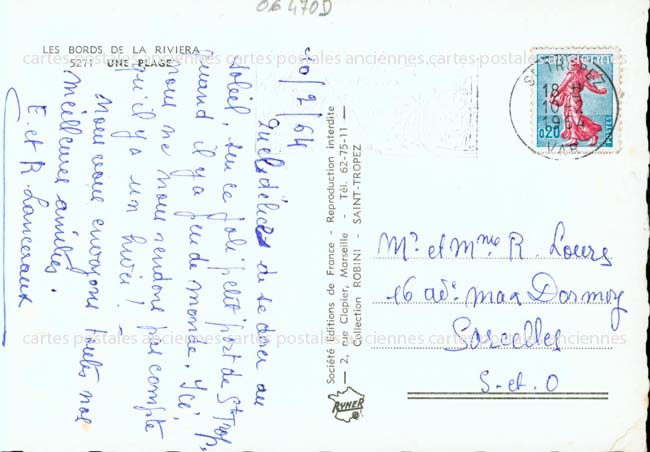 06470D
LES BORDS DE LA RIVIERA
5271 UNE PLAGE
cartes postales anciennes cartes postales anciennes cartes postales anciennes
10/2/64
Quel délice de se dorer au
soleil, sur ce joli petit port de St Trop.
quand il y a peu de monde. Ici,
nous ne nous rendons pas compte
qu'il y a un hiver !
Nous vous envoyons toutes nos
meilleures amitiés.
E et R. Lanceraux
Société Editions de France - Reproduction interdite
— 2, rue Clapier, Marseille - Tél. 62-75-11 —
Collection ROBINI - SAINT-TROPEZ
RYNER
ST TROPEZ
18 H
10
2
VAR
0,20
POSTES
Mr et Mme R. Lours
16 ade max Dormoy
Sarcelles
S-et-O
cartes postales anciennes cartes postales anciennes cartes postales anciennes